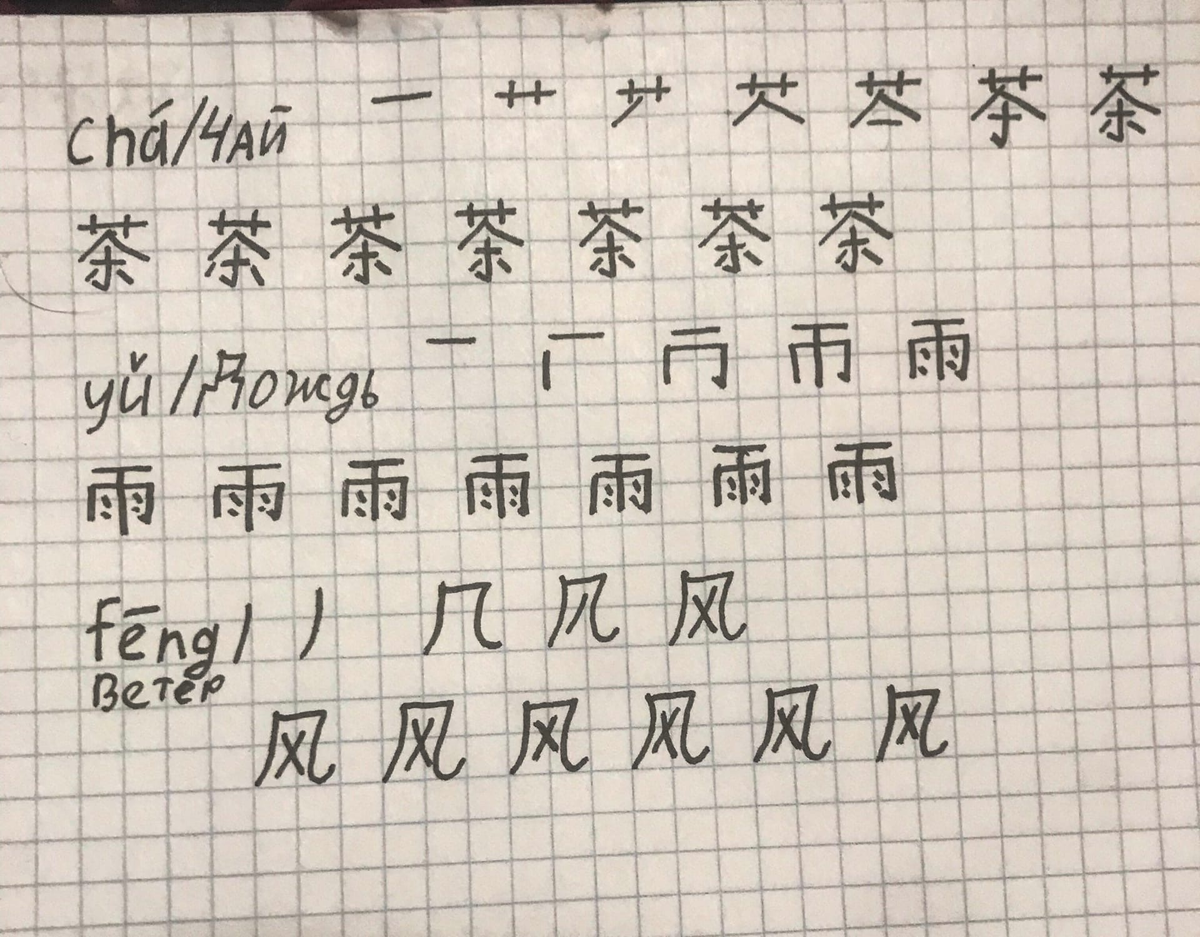 chá/чай 一 艹 艹 艾 茶 茶 茶
茶 茶 茶 茶 茶 茶 茶
yǔ/Дождь 一 冂 帀 雨
雨 雨 雨 雨 雨 雨 雨
fēng/ 丿 几 风
Ветер
风 风 风 风 风 风